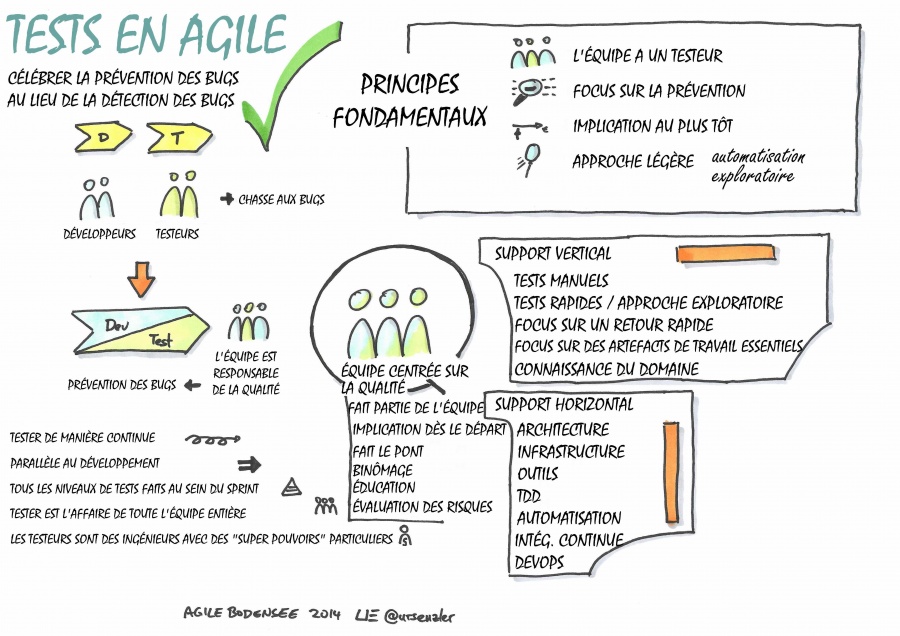 TESTS EN AGILE
CÉLÉBRER LA PRÉVENTION DES BUGS
AU LIEU DE LA DÉTECTION DES BUGS
D
T
DÉVELOPPEURS
TESTEURS
CHASSE AUX BUGS
Dev
Test
L'ÉQUIPE EST
RESPONSABLE
DE LA QUALITÉ
PRÉVENTION DES BUGS
TESTER DE MANIÈRE CONTINUE
PARALLÈLE AU DÉVELOPPEMENT
TOUS LES NIVEAUX DE TESTS FAITS AU SEIN DU SPRINT
TESTER EST L'AFFAIRE DE TOUTE L'ÉQUIPE ENTIÈRE
LES TESTEURS SONT DES INGÉNIEURS AVEC DES "SUPER POUVOIRS" PARTICULIERS
PRINCIPES
FONDAMENTAUX
L'ÉQUIPE A UN TESTEUR
FOCUS SUR LA PRÉVENTION
IMPLICATION AU PLUS TÔT
APPROCHE LÉGÈRE automatisation
exploratoire
ÉQUIPE CENTRÉE SUR
LA QUALITÉ
FAIT PARTIE DE L'ÉQUIPE
IMPLICATION DÈS LE DÉPART
FAIT LE PONT
BINÔMAGE
ÉDUCATION
ÉVALUATION DES RISQUES
SUPPORT VERTICAL
TESTS MANUELS
TESTS RAPIDES / APPROCHE EXPLORATOIRE
FOCUS SUR UN RETOUR RAPIDE
FOCUS SUR DES ARTEFACTS DE TRAVAIL ESSENTIELS
CONNAISSANCE DU DOMAINE
SUPPORT HORIZONTAL
ARCHITECTURE
INFRASTRUCTURE
OUTILS
TDD
AUTOMATISATION
INTÉG. CONTINUE
DEVOPS
AGILE BODENSEE 2014 @ursenzler